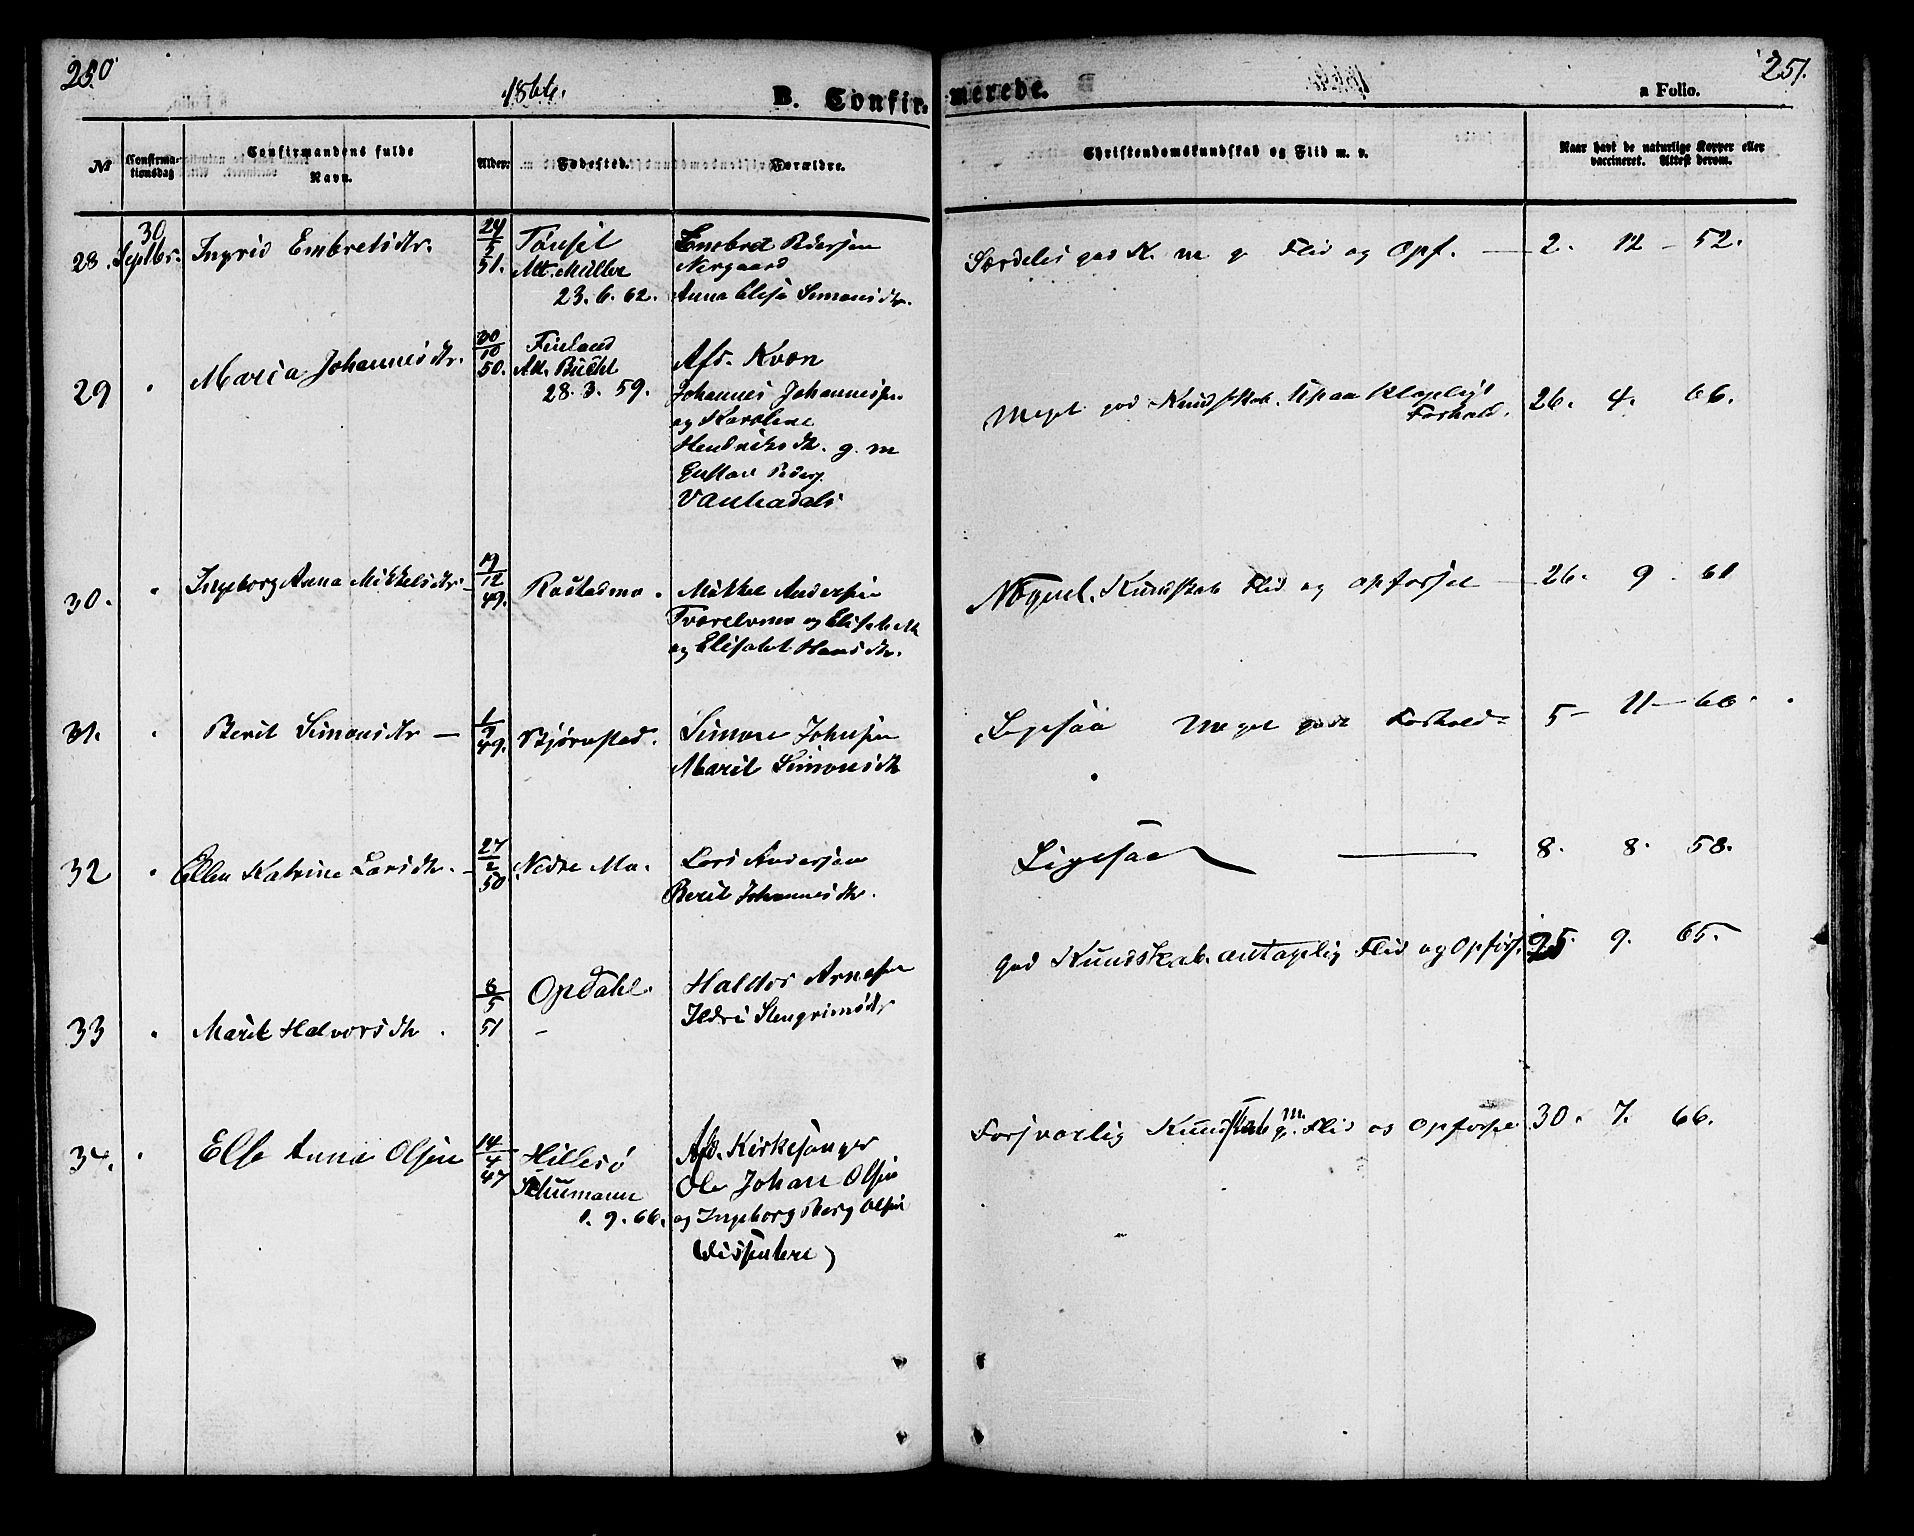 250
1866.
B. Confirmerede.
251.
a Folio.
№ Confirmationsdag Confirmandens fulde Navn. Alder. Fødested. Forældre. Christendomskundskab og Flid m. v. Naar havt de naturlige Kopper eller vaccineret. Attest derom.
28. 30 Septbr. Ingrid Embretsdtr. 24/5 51. Tønset Embret Pedersen Særdeles god K. m g Flid og Opf. — 2. 12 – 52.
Att. Müller Nergaard
23. 6. 62. Anna Elisa Simonsdtr.
29 " Maria Johannesdtr. 30/10 50. Finland Afd. Kvæn
Att. Bucht
28. 3. 59. Johannes Johannessen Meget god Kundskab. Upaaklageligt Forhold. 26. 4. 66.
og Karoline
Hendriksdtr. g. m
Gustav Peders.
30. " Ingeborg Anna Mikkelsdtr 19/12 49. Rostadmo. Mikkel Andersen Nøgael. Kundskab Flid og Opførsel — 26. 9. 61
Tværelvmo og Elisabeth
og Elisabet Hansdtr.
31. " Berit Simonsdtr — 1/9 49. Bjørnstad. Simon Johnsen Ligesaa Meget godt Forhold 5 – 11 – 66.
Marit Simonsdtr
32 " Ellen Katrine Larsdtr. – 27/2 50 Nedre Mo. Lars Andersen Ligesaa — 8. 8. 58.
Berit Johannesdtr.
33 " Marit Halvorsdtr. 8/5 51 Opdahl. Haldor Arnesen god Kundskab. antagelig Flid og Opførs. 25. 9. 65.
– Ildri Stengrimsdtr
34. " Else Anna Olsen 14/4 47 Hillesø Afd. Kirkesanger Forsvarlig Kundskab m. g. Flid og Opførsel 30. 7. 66.
Schumann Ole Johan Olsen
1. 9. 66. og Ingeborg Berg Olsen
(dissentere)